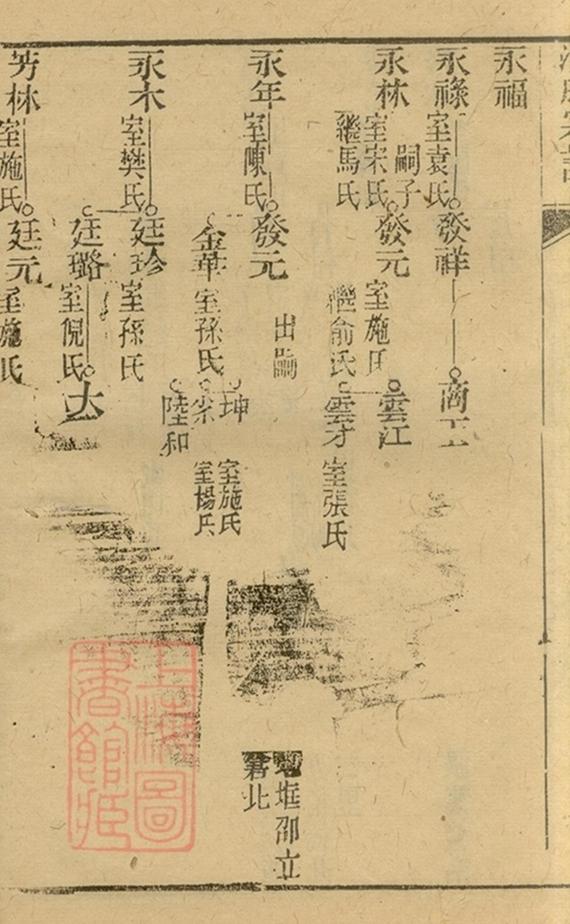 永福
永祿 室袁氏 發祥 商
永林 嗣子 室宋氏 繼馬氏 發元 室施氏 繼俞氏 雲江
雲才 室張氏
永年 室陳氏 發元 出嗣
坤 室施氏
金華 室孫氏 室楊氏
陸和
永木 室樊氏 廷珍 室孫氏
廷璐 室倪氏
芳林 室施氏 廷元 室施氏
邵立
上海圖書館藏